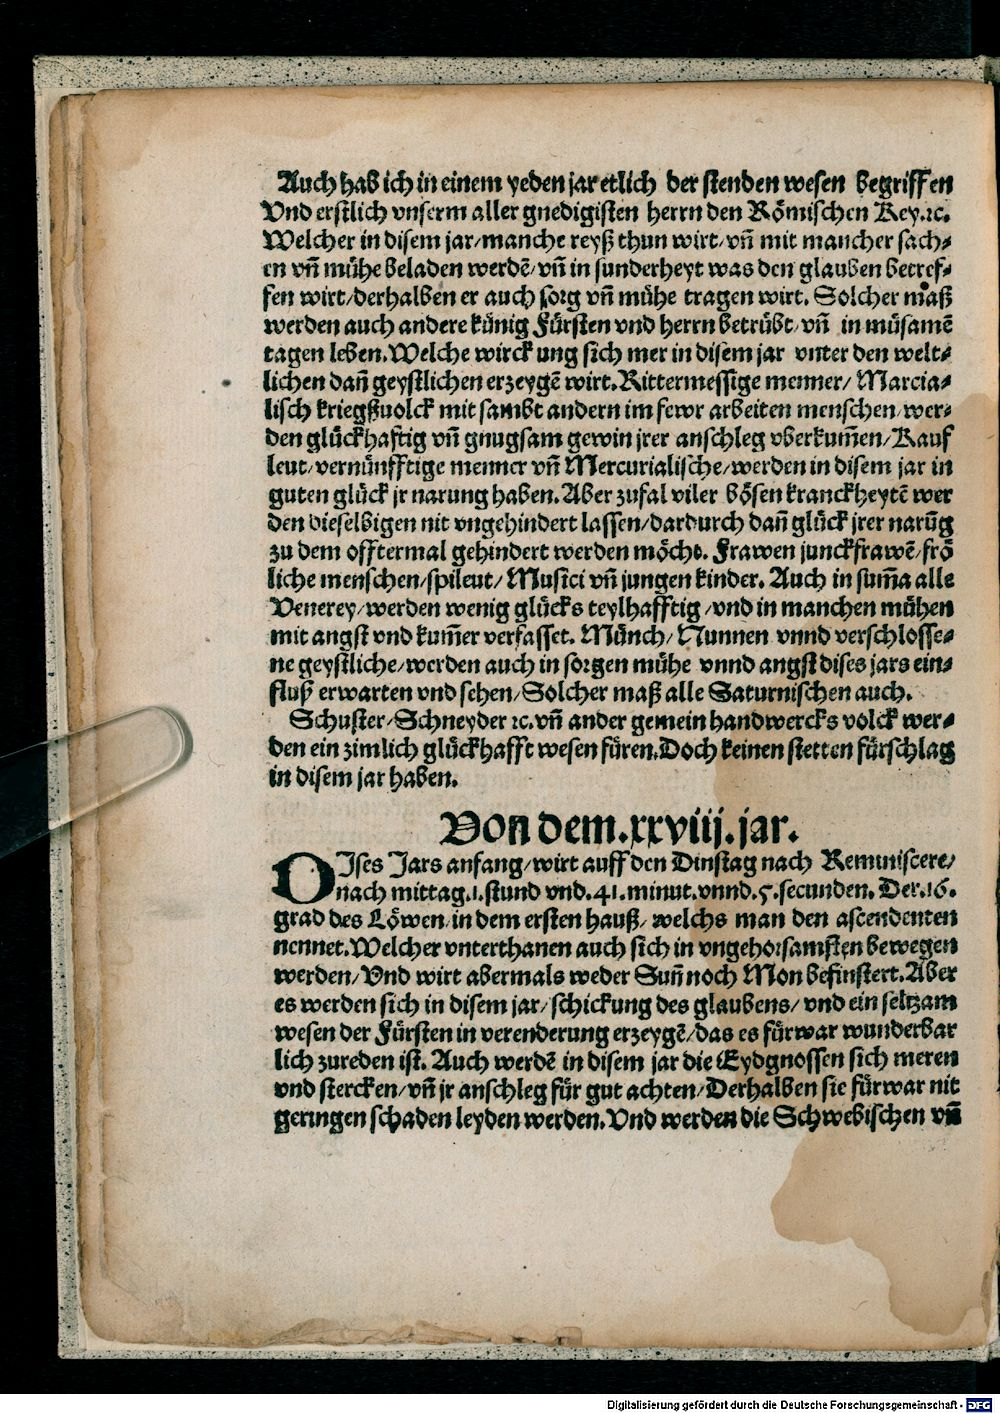 Auch hab ich in einem yeden jar etlich der stenden wesen begriffen
Vnd erstlich vnserm aller gnedigisten herrn den Römischen Key.ꝛc.
Welcher in disem jar/manche reyß thun wirt/vñ mit mancher sach⸗
en vñ mühe beladen werdē/vñ in sunderheyt was den glauben betref⸗
fen wirt/derhalben er auch sorg vñ mühe tragen wirt. Solcher maß
werden auch andere künig Fürsten vnd herrn betrübt/vñ in müsamē
tagen leben.Welche wirckung sich mer in disem jar vnter den welt⸗
lichen dañ geystlichen erzeygē wirt.Rittermessige menner/ Marcia⸗
lisch kriegßuolck mit sambt andern im fewr arbeiten menschen/wer⸗
den glückhafftig vñ gnugsam gewin jrer anschleg vberkum̄en/Kauf
leut/vernünfftige menner vñ Mercurialische/werden in disem jar in
guten glück jr narung haben.Aber zufal viler bösen kranckheytē wer
den dieselbigen nit vngehindert lassen/dardurch dañ glück jrer narūg
zu dem offtermal gehindert werden möcht. Frawen junckfrawē/frö
liche menschen/spileut/Musici vñ jungen kinder. Auch in sum̄a alle
Venerey/werden wenig glücks teylhafftig/vnd in manchen mühen
mit angst vnd kum̄er verfasset. Münch/Nunnen vnnd verschlosse⸗
ne geystliche/werden auch in sorgen mühe vnnd angst dises jars ein⸗
fluß erwarten vnd sehen/Solcher maß alle Saturnischen auch.
Schuster/Schneyder ꝛc.vñ ander gemein handwercks volck wer⸗
den ein zimlich glückhafft wesen füren.Doch keinen stetten fürschlag
in disem jar haben.
Von dem.xxviij.jar.
DJses Jars anfang/wirt auff den Dinstag nach Reminiscere/
nach mittag.1.stund vnd.41.minut.vnnd.5.secunden. Der.16.
grad des Löwen/in dem ersten hauß/welchs man den ascendenten
nennet.Welcher vnterthanen auch sich in vngehorsamsten bewegen
werden/Vnd wirt abermals weder Suñ noch Mon befinstert.Aber
es werden sich in disem jar/schickung des glaubens/vnd ein seltzam
wesen der Fürsten in verenderung erzeygē/das es fürwar wunderbar
lich zureden ist. Auch werdē in disem jar die Eydgnossen sich meren
vnd stercken/vñ jr anschleg für gut achten/Derhalben sie fürwar nit
geringen schaden leyden werden.Vnd werden die Schwebischen vñ
Digitalisierung gefördert durch die Deutsche Forschungsgemeinschaft - DFG